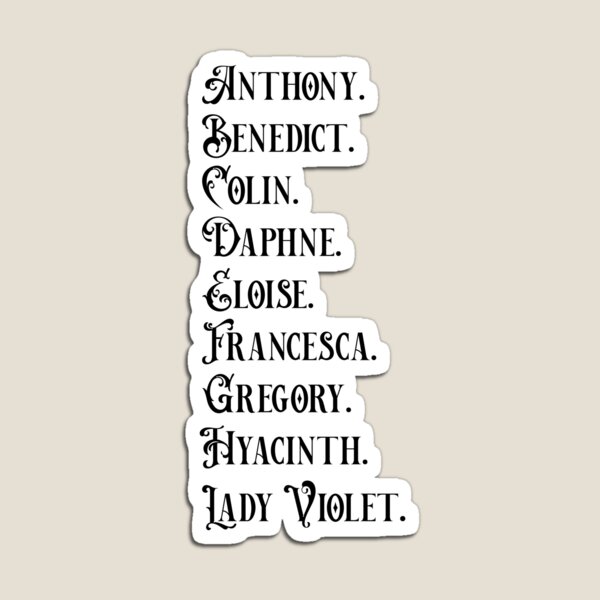 Anthony.
Benedict.
Colin.
Daphne.
Eloise.
Francesca.
Gregory.
Hyacinth.
Lady Violet.